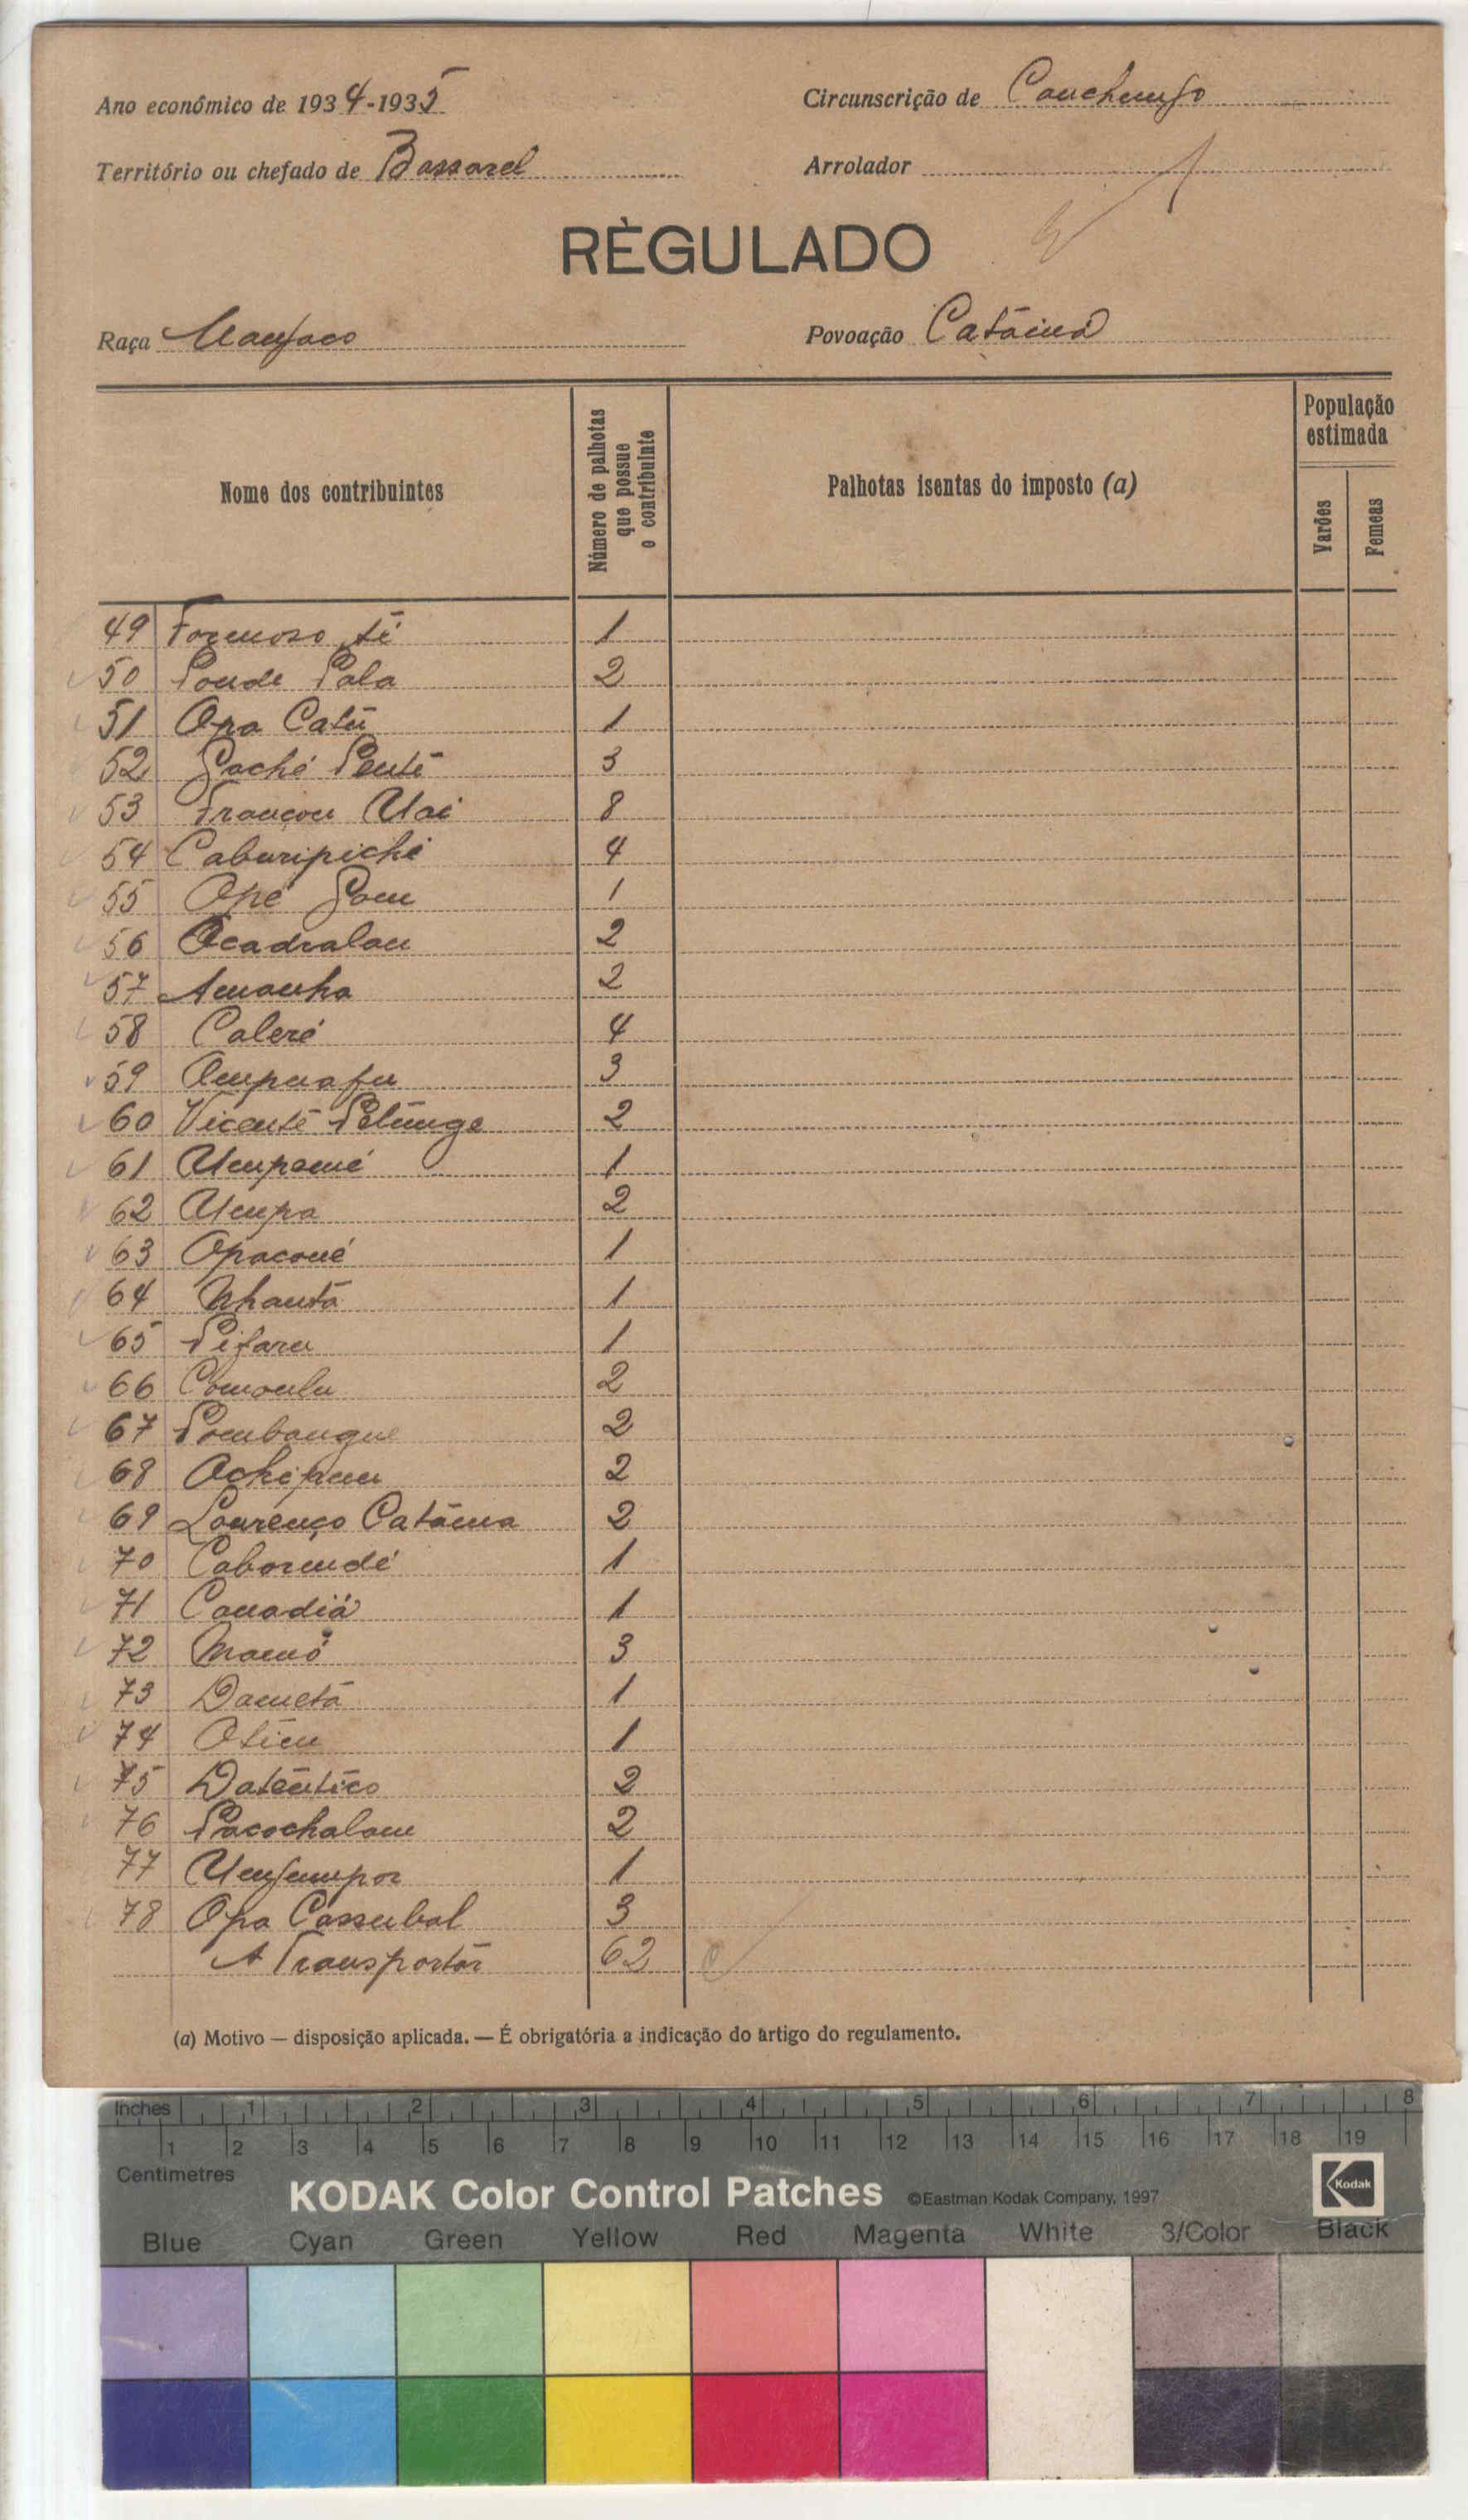 Ano económico de 1934-1935 Circunscrição de Canchungo
Território ou chefado de Bassarel Arrolador
RÈGULADO
Raça Manjaco Povoação Catâma
Nome dos contribuintes
Número de palhotas que possue o contribuinte
Palhotas isentas do imposto (a)
População estimada
Varões
Femeas
49 Formoso Té 1
50 Ponde Pala 2
51 Opa Catú 1
52 Gaché Penté 3
53 Françou Uai 8
54 Caburipiche 4
55 Opé Gom 1
56 Ocadralau 2
57 Amanha 2
58 Caleré 4
59 3
60 Vicente Pelunge 2
61 1
62 Ucupa 2
63 Opaconé 1
64 Nhantà 1
65 Pifaru 1
66 2
67 Pombangue 2
68 2
69 Lourenço Catâma 2
70 Caborundé 1
71 Canadiá 1
72 Mamó 3
73 Dametá 1
74 Oticu 1
75 Datentico 2
76 Pacochalam 2
77 1
78 Opa Cassubal 3
A Transportar 62
(a) Motivo — disposição aplicada. — É obrigatória a indicação do artigo do regulamento.
Inches 1 2 3 4 5 6 7 8
1 2 3 4 5 6 7 8 9 10 11 12 13 14 15 16 17 18 19
Centimetres
KODAK Color Control Patches ©Eastman Kodak Company, 1997 Kodak
Blue Cyan Green Yellow Red Magenta White 3/Color Black